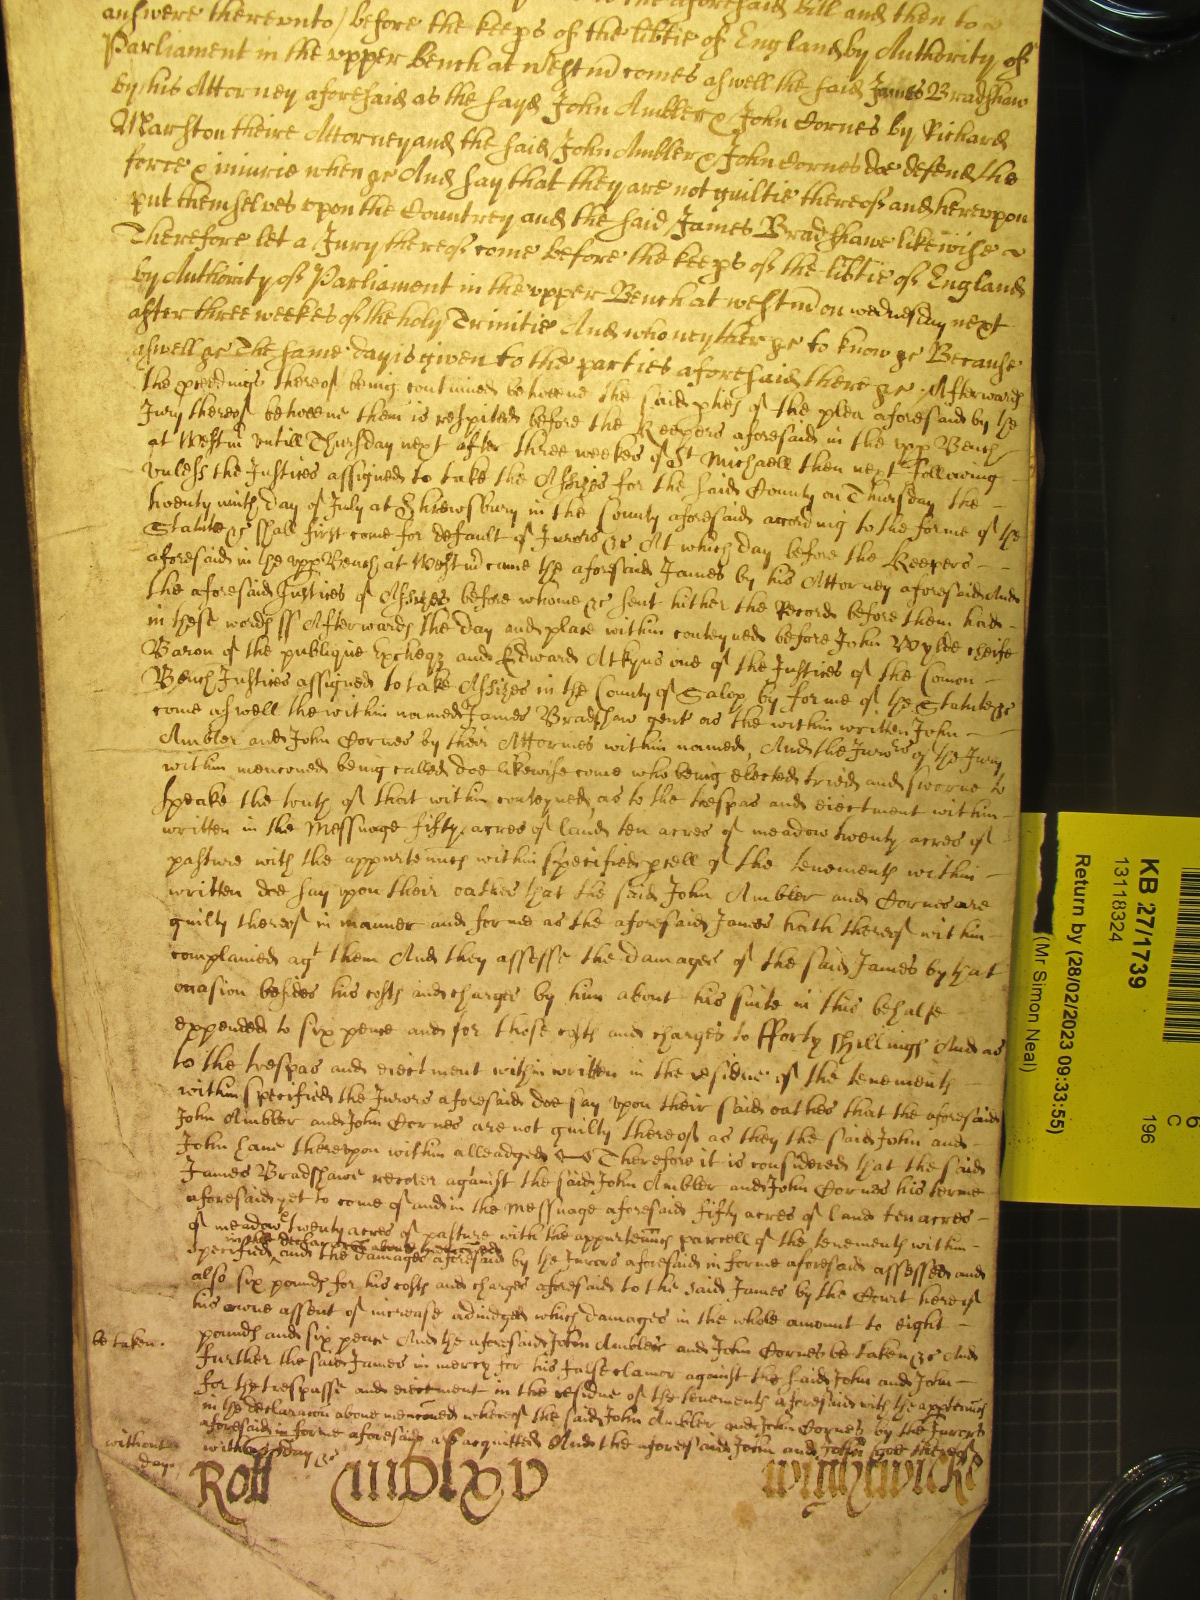 the aforesaid Bill and then to
answere therevnto / before the keeps of the libtie of England by Authority of
Parliament in the vpper Bench at Westm comes aswell the said James Bradshaw
by his Attorney aforesaid as the sayd John Ambler & John Cornes by Richard
Marston theire Attorney and the said John Ambler & John Cornes doe defend the
force & iniurie when &c And say that they are not guiltie thereof and herevpon
put themselves vpon the Countrey and the said James Bradshawe likewise
Therefore let a Jury thereof come before the keeps of the libtie of England
by Authority of Parliament in the vpper Bench at westm on wednesday next
after three weekes of the holy Trinitie And who neyther &c to know &c Because
aswell &c The same day is given to the parties aforesaid there &c Afterwards
the pceedings thereof being continued betweene the said pties of the plea aforesaid by the
Jury thereof betweene them is respited before the Keepers aforesaid in the vpp Bench
at Westm vntill Thursday next after three weekes of St Michaell then next following
vnless the Justices assigned to take the Assizes for the said County on Thursday the
twenty ninth day of July at Shrewsbury in the County aforesaid according to the forme of the
Statute &c shall first come for default of Jurors &c At which day before the Keepers
aforesaid in the vpp Bench at Westm came the aforesaid James by his Attorney aforesaid And
the aforesaid Justices of Assizes before whome &c sent hither the Record before them had
in these words ss Afterwards the day and place within conteyned before John Wylde cheife
Baron of the publique Excheqr and Edward Atkyns one of the Justices of the Comon
Bench Justices assigned to take Assizes in the County of Salop by forme of the Statute &c
come aswell the within named James Bradshaw gent as the within written John
Ambler and John Cornes by their Attornies within named And the Jurors of the Jury
within menconed being called doe likewise come who being elected tried and sworne to
speake the truth of that within conteyned as to the trespas and eiectment within
written in the Messuage fifty acres of land ten acres of meadow twenty acres of
pasture with the appurtenncs within specified pcell of the tenements within
written doe say vpon their oathes that the said John Ambler and Cornes are
guilty thereof in manner and forme as the aforesaid James hath thereof within
complained agt them And they assesse the damages of the said James by that
occasion besides his costs and charges by him about his suite in this behalfe
expended to six pence and for those costs and charges to fforty shillings And as
to the trespas and eiectment within written in the residue of the tenements
within specified the Jurors aforesaid doe say vpon their said oathes that the aforesaid
John Ambler and John Cornes are not guilty thereof as they the said John and
John haue therevpon within alleadged Therefore it is considered that the said
James Bradshawe recover against the said John Ambler and John Cornes his terme
aforesaid yet to come of and in the Messuage aforesaid fifty acres of land ten acres
of meadow twenty acres of pasture with the appurtenncs parcell of the tenements within
in the declaracon above menconed
specified and the damages aforesaid by the Jurors aforesaid in forme aforesaid assessed and
also six pounds for his costs and charges aforesaid to the said James by the Court here of
his owne assent of increase adiudged which damages in the whole amount to eight
be taken. pounds and six pence And the aforesaid John Ambler and John Cornes be taken &c And
further the said James in mercy for his false clamor against the said John and John
for the trespasse and eiectment in the residue of the tenements aforesaid with the apptenncs
in the declaracon above menconed whereof the said John Ambler and John Cornes by the Jurors
aforesaid in forme aforesaid are acquitted And the aforesaid John and John goe thereof
without day without day &c
Roll MDLXV Wightwicke
KB 27/1739
13118324
Return by (28/02/2023 09:33:55)
(Mr Simon Neal)
6
C
196